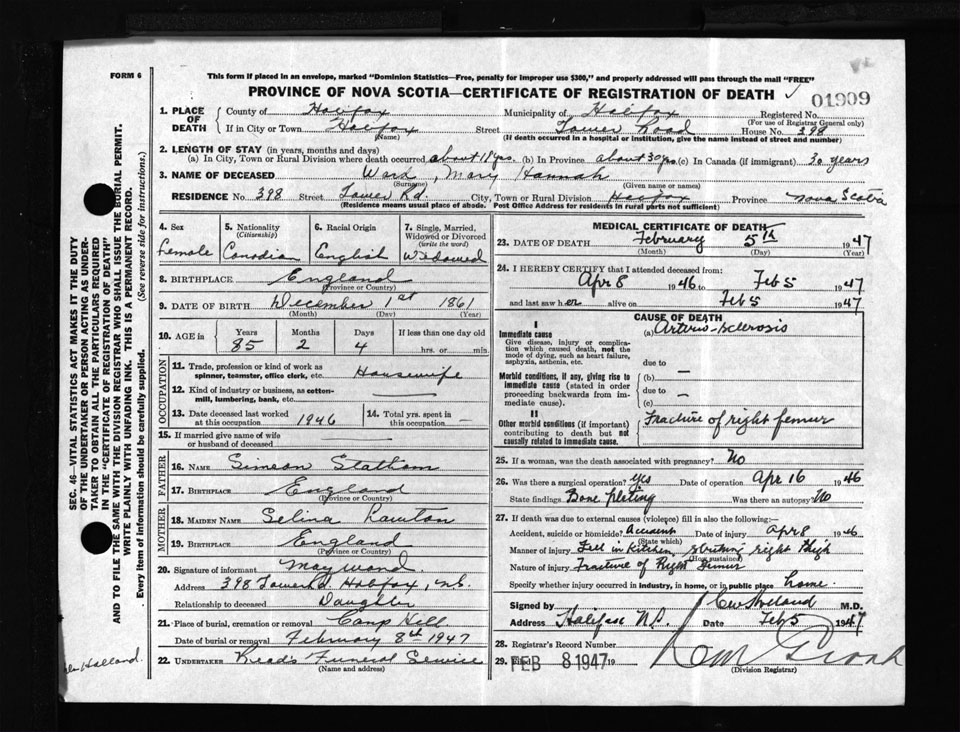 FORM 6
This form if placed in an envelope, marked "Dominion Statistics—Free, penalty for improper use $300," and properly addressed will pass through the mail "FREE"
PROVINCE OF NOVA SCOTIA—CERTIFICATE OF REGISTRATION OF DEATH
01909
1. PLACE OF DEATH
County of Halifax Municipality of Halifax Registered No.
(For use of Registrar General only)
If in City or Town Halifax Street Tower Road House No. 398
(Name) (If death occurred in a hospital or institution, give the name instead of street and number)
2. LENGTH OF STAY (in years, months and days)
(a) In City, Town or Rural Division where death occurred about 11 yrs. (b) In Province about 30 yrs. (c) In Canada (if immigrant) 30 years
3. NAME OF DECEASED Ward, Mary Hannah
(Surname) (Given name or names)
RESIDENCE No 398 Street Tower Rd. City, Town or Rural Division Halifax Province Nova Scotia
(Residence means usual place of abode. Post Office Address for residents in rural parts not sufficient)
4. Sex
Female
5. Nationality
(Citizenship)
Canadian
6. Racial Origin
English
7. Single, Married, Widowed or Divorced
(write the word)
Widowed
8. BIRTHPLACE England
(Province or Country)
9. DATE OF BIRTH December 1st 1861
(Month) (Day) (Year)
10. AGE in Years Months Days If less than one day old
85 2 4 hrs. or min.
OCCUPATION
11. Trade, profession or kind of work as spinner, teamster, office clerk, etc. Housewife
12. Kind of industry or business, as cotton-mill, lumbering, bank, etc. —
13. Date deceased last worked at this occupation 1946
14. Total yrs. spent in this occupation —
15. If married give name of wife or husband of deceased
FATHER
16. NAME Simeon Statham
17. BIRTHPLACE England
(Province or Country)
MOTHER
18. MAIDEN NAME Selina Lawton
19. BIRTHPLACE England
(Province or Country)
20. Signature of informant May Ward
Address 398 Tower Rd. Halifax, N.S.
Relationship to deceased Daughter
21. Place of burial, cremation or removal Camp Hill
Date of burial or removal February 8th 1947
22. UNDERTAKER Funeral Service
(Name and address)
MEDICAL CERTIFICATE OF DEATH
23. DATE OF DEATH February 5th 1947
(Month) (Day) (Year)
24. I HEREBY CERTIFY that I attended deceased from:
Apr 8 1946 to Feb 5 1947
and last saw her alive on Feb 5 1947
CAUSE OF DEATH
I
Immediate cause (a) Arterio-sclerosis
Give disease, injury or complication which caused death, not the mode of dying, such as heart failure, asphyxia, asthenia, etc.
due to
Morbid conditions, if any, giving rise to immediate cause (stated in order proceeding backwards from immediate cause).
(b) —
due to —
(c)
II
Other morbid conditions (if important) contributing to death but not causally related to immediate cause.
Fracture of right femur
25. If a woman, was the death associated with pregnancy? No
26. Was there a surgical operation? Yes Date of operation Apr 16 1946
State findings Bone plating Was there an autopsy No
27. If death was due to external causes (violence) fill in also the following:—
Accident, suicide or homicide? Accident Date of injury Apr 8 1946
(State which)
Manner of injury Fell in Kitchen, striking right thigh
(How sustained)
Nature of injury Fracture of Right Femur
Specify whether injury occurred in industry, in home, or in public place home.
Signed by M.D.
Address Halifax N.S. Date Feb 5 1947
28. Registrar's Record Number
29. Filed FEB 8 1947 19
(Division Registrar)
SEC. 46—VITAL STATISTICS ACT MAKES IT THE DUTY OF THE UNDERTAKER OR PERSON ACTING AS UNDERTAKER TO OBTAIN ALL THE PARTICULARS REQUIRED IN THE "CERTIFICATE OF REGISTRATION OF DEATH" AND TO FILE THE SAME WITH THE DIVISION REGISTRAR WHO SHALL ISSUE THE BURIAL PERMIT.
WRITE PLAINLY WITH UNFADING INK. THIS IS A PERMANENT RECORD.
Every item of information should be carefully supplied. (See reverse side for instructions.)
Holland.